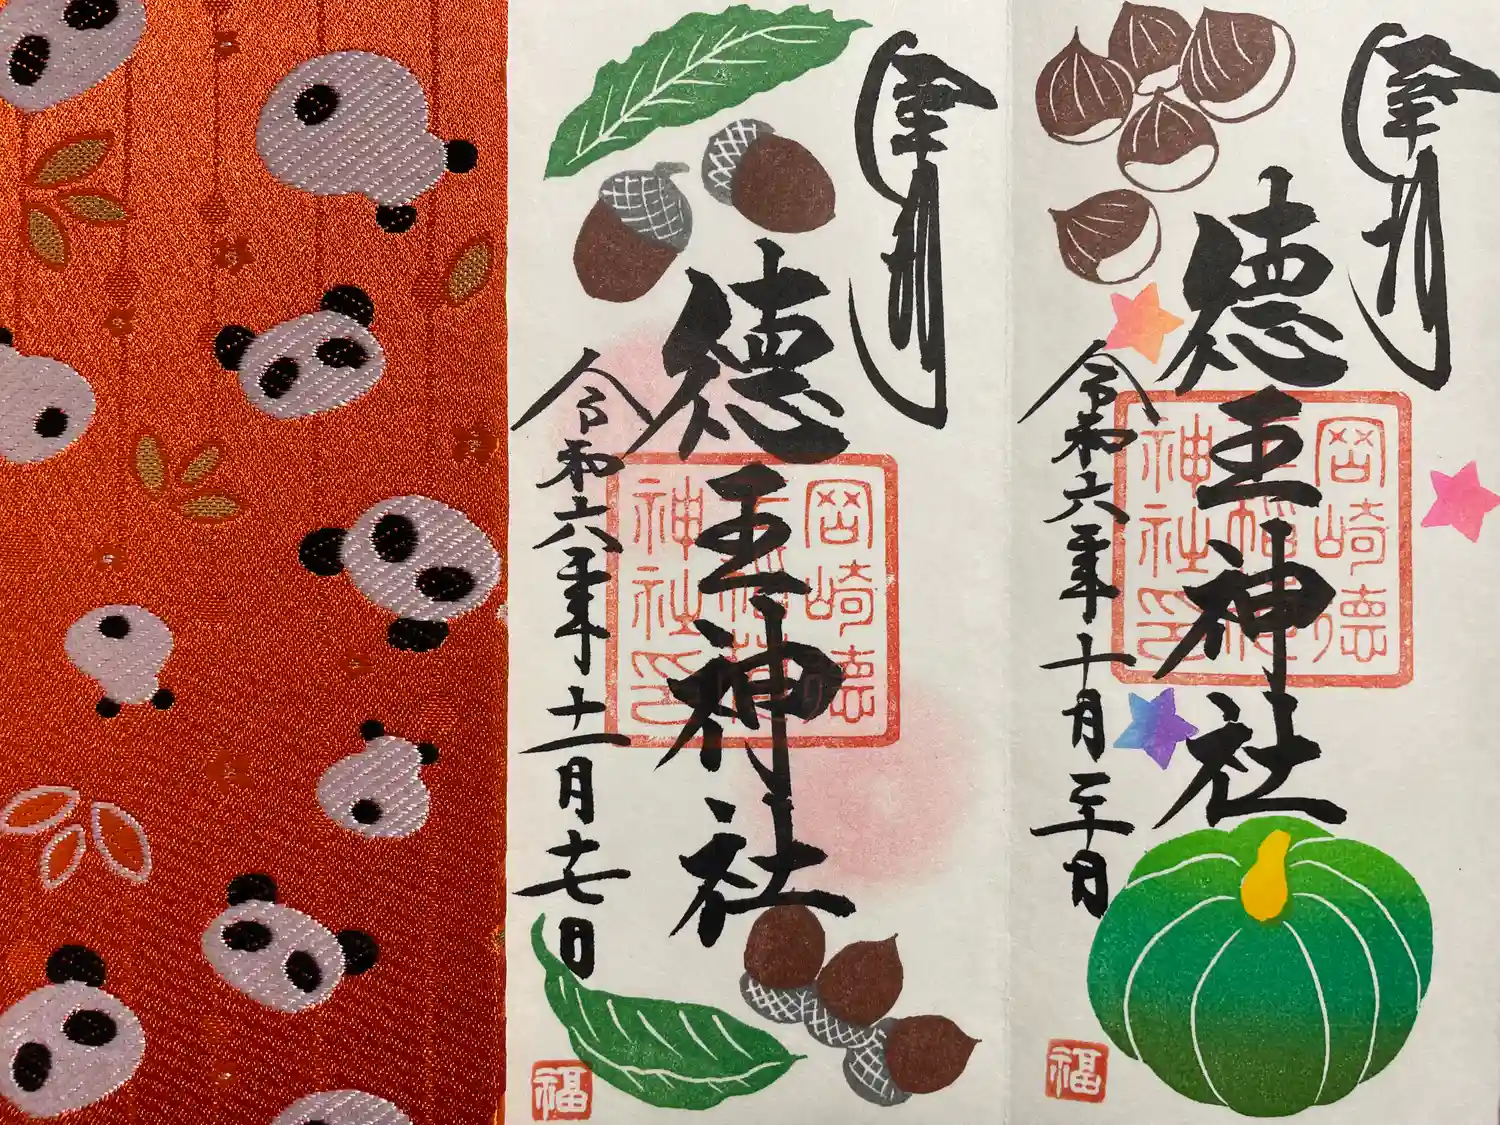 奉拝
德王神社
令和六年十月二十日
岡崎德
王稲荷
神社印
福
奉拝
德王神社
令和六年十一月十七日
岡崎德
王稲荷
神社印
福